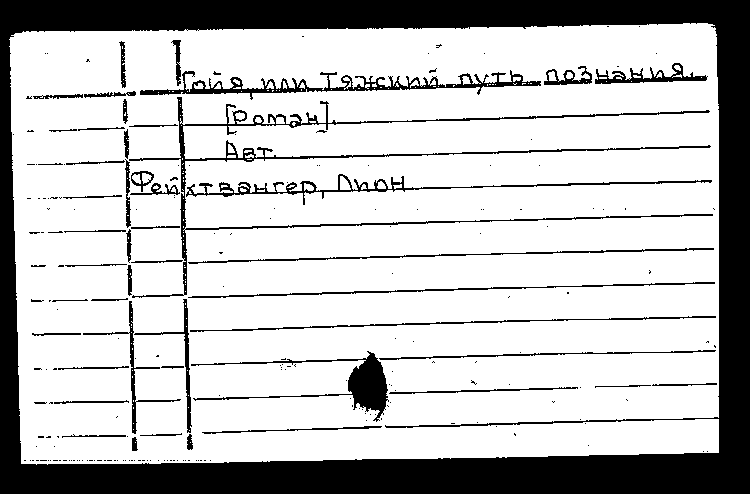 Гойя, или Тяжкий путь познания.
[Роман].
Авт.
Фейхтвангер, Лион